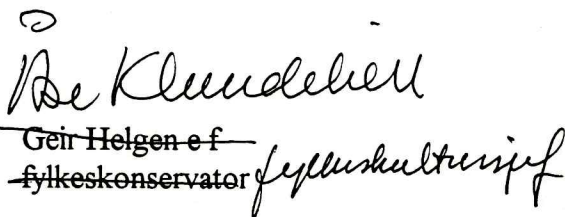 Åse Klundelien
Geir Helgen e f
fylkeskonservator fylkeskultursjef